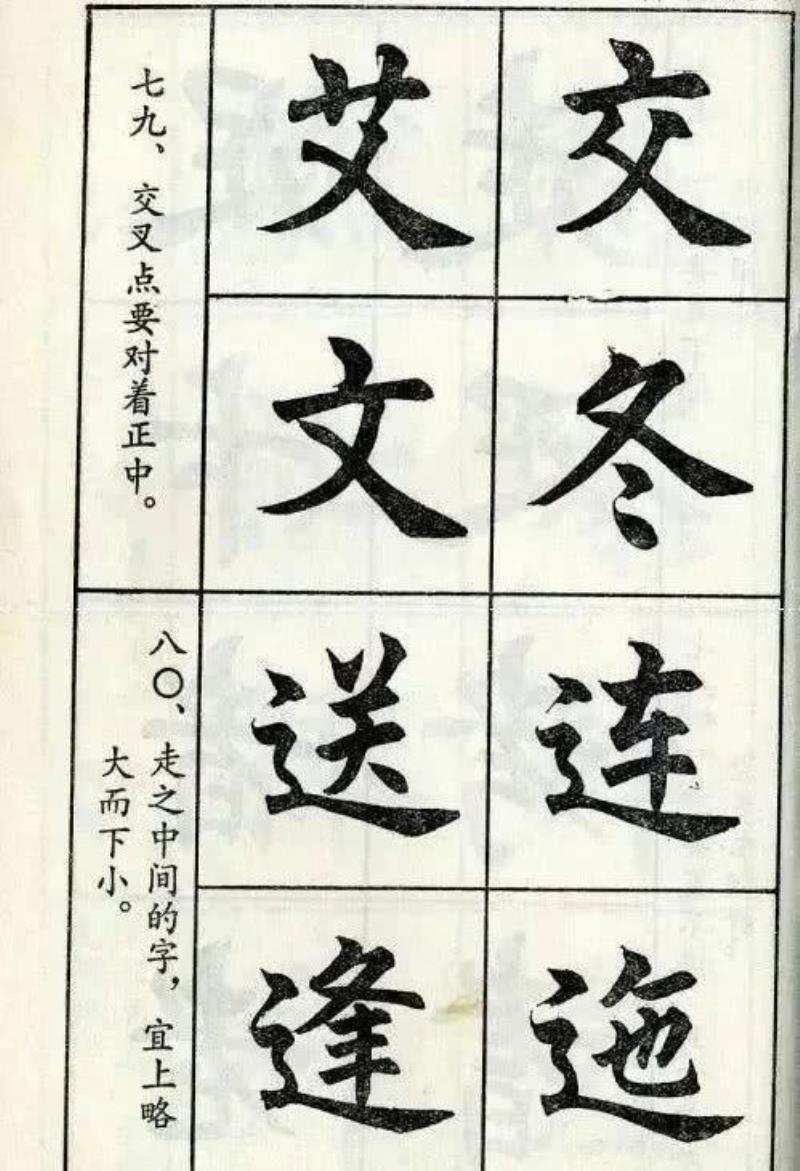 交
冬
艾
文
七九、交叉点要对着正中。
连
迤
送
逢
八〇、走之中间的字，宜上略
大而下小。